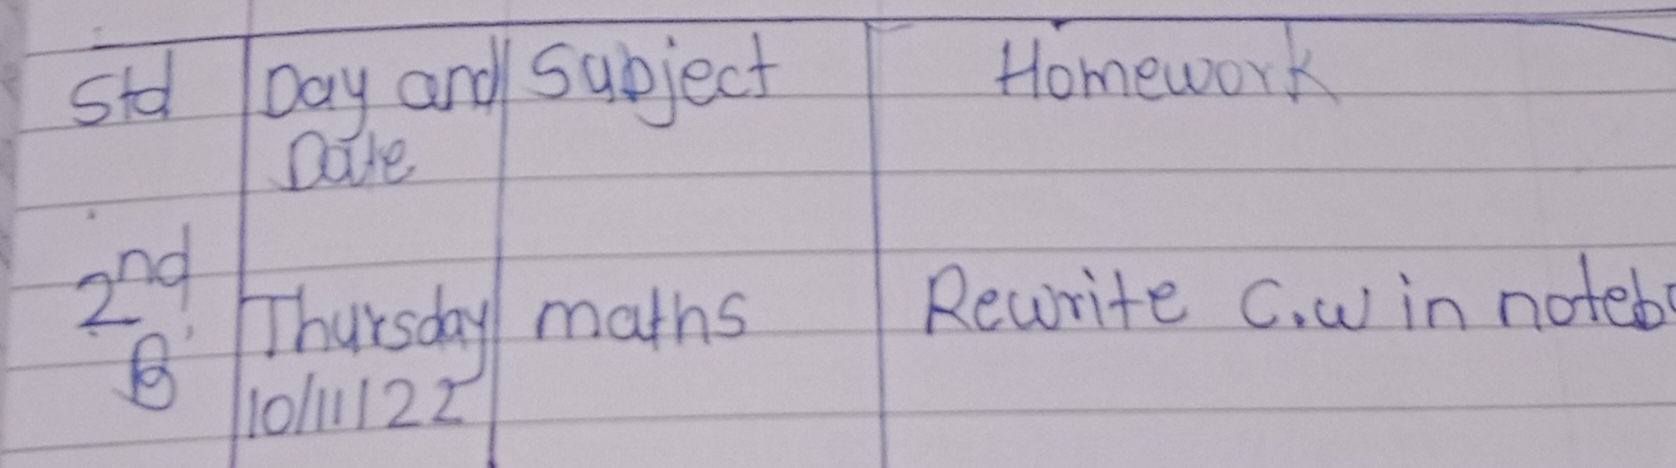 Std Day and Subject Homework
Date
2nd Thursday maths Rewrite C.W in
B 10/11/22